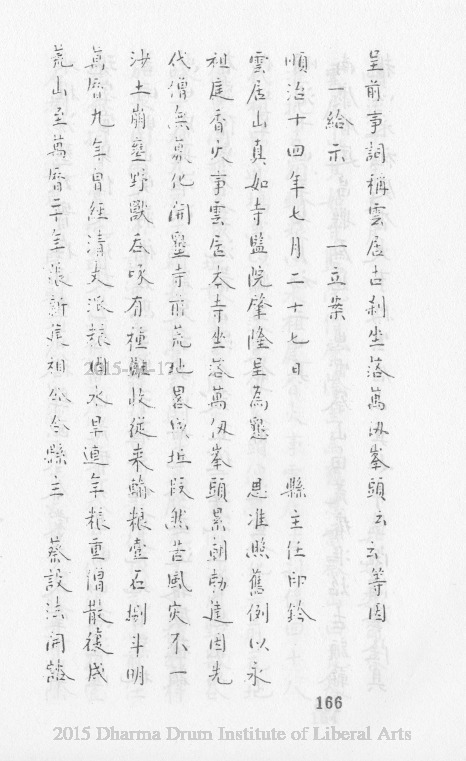 呈前事詞稱雲居古刹坐落萬仭峯頭云云等因
一給示　一立案
順治十四年七月二十七日　縣主任印鈴
雲居山真如寺監院肇隆呈為懇　恩准照舊例以永
祖庭香火事雲居本寺坐落萬仭峯頭累朝勅建因先
代僧無募化開墾寺前荒地畧成坵段然苦風灾不一
沙土崩壅野獸吞啄有種難收從来輸粮壹石捌斗明
萬曆九年曾經清丈派粮因水旱連年粮重僧散復成
荒山至萬曆二十年張新崖相公令縣主　蔡設法開誥
166
2015 Dharma Drum Institute of Liberal Arts